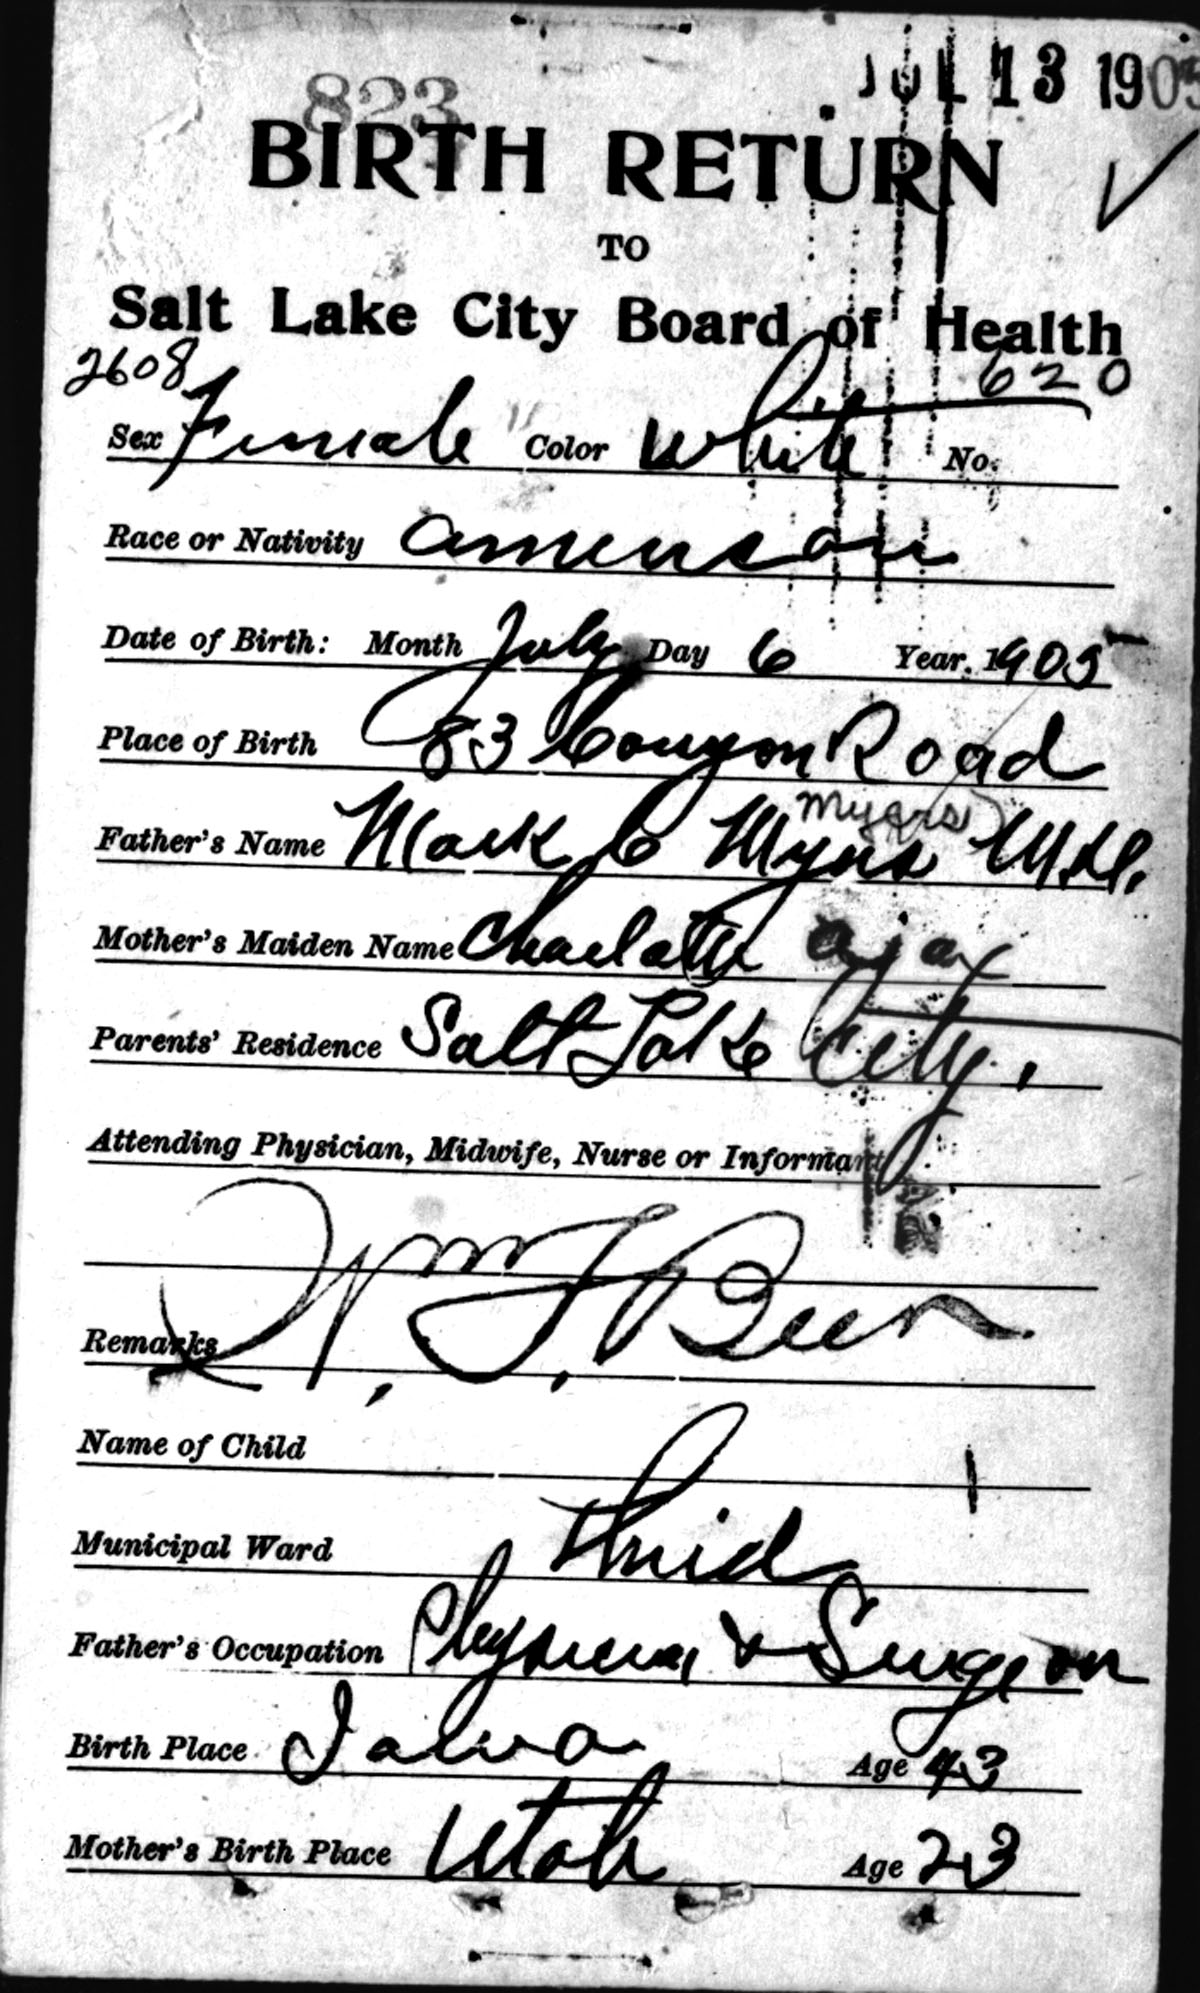 JUL 13 1905
823
BIRTH RETURN
TO
Salt Lake City Board of Health
2608 620
Sex Female Color White No.
Race or Nativity American
Date of Birth: Month July Day 6 Year. 1905
Place of Birth 83 Canyon Road
Myers
Father's Name Mark C Myers M.D.
Mother's Maiden Name Charlotte Ajax
Parents' Residence Salt Lake City.
Attending Physician, Midwife, Nurse or Informant
Wm. F. Beer
Remarks
Name of Child
Municipal Ward Third
Father's Occupation Physician & Surgeon
Birth Place Iowa Age 43
Mother's Birth Place Utah Age 23